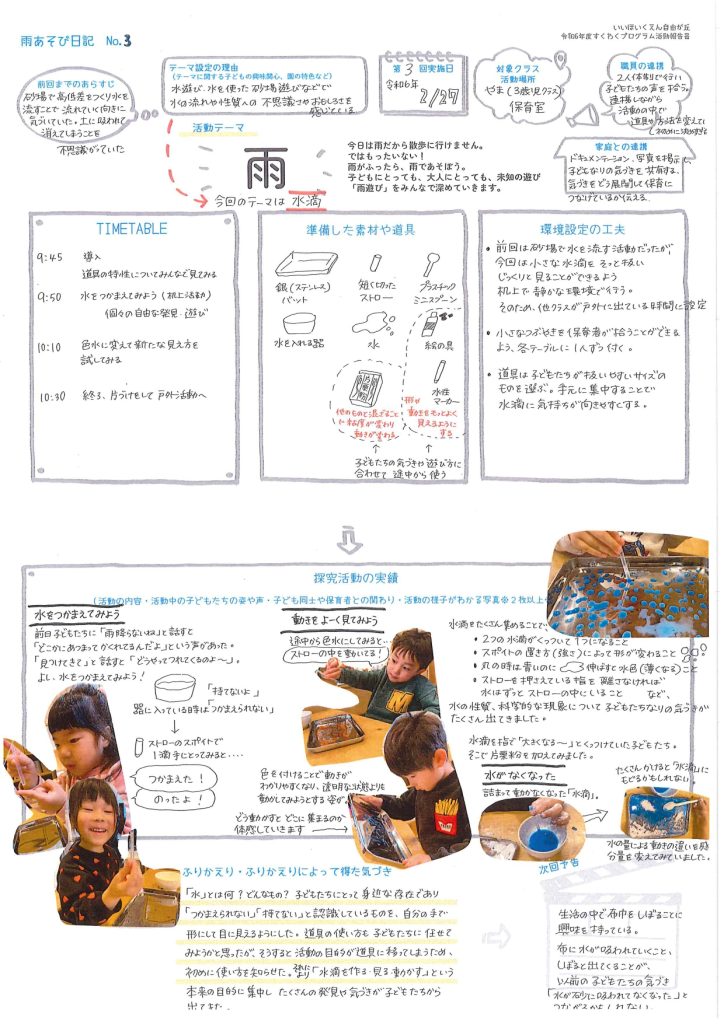 雨あそび日記 No.3
いいほいくえん自由が丘
令和6年度すくわくプログラム活動報告書
前回までのあらすじ
砂場で高低差をつくり水を
流すことで流れていく向きに
気づいていた。土に吸われて
消えてしまうことを
不思議がっていた
テーマ設定の理由
(テーマに関する子どもの興味関心、園の特色など)
水遊び、水を使った砂場遊びなどで
水の流れや性質への不思議さやおもしろさを
感じている
第3回実施日
令和6年
2/27
対象クラス
活動場所
やま(3歳児クラス)
保育室
職員の連携
2人体制で行い
子どもたちの声を拾う。
連携しながら
活動の中で
道具や方法を変えて
家庭との連携
ドキュメンテーション、写真を掲示し
子どもなりの気づきを共有する。
気づきをどう展開して保育に
つなげているか伝える
活動テーマ
雨
今回のテーマは 水滴
今日は雨だから散歩に行けません。
ではもったいない!
雨がふったら、雨であそぼう。
子どもにとっても、大人にとっても、未知の遊び
「雨遊び」をみんなで深めていきます。
TIMETABLE
9:45 導入
道具の特性についてみんなで見てみる
9:50 水をつかまえてみよう(机上活動)
個々の自由な発見・遊び
10:10 色水に変えて新たな見え方を
試してみる
10:30 終了、片づけをして戸外活動へ
準備した素材や道具
銀(ステンレス)
バット
短く切った
ストロー
プラスチック
ミニスプーン
水を入れる器
水
絵の具
水性
マーカー
片栗粉
他のものと混ざること
で粘度が変わり
動きが変わる
形や
動きをもっとよく
見えるように
する
子どもたちの気づきや遊び方に
合わせて途中から使う
環境設定の工夫
• 前回は砂場で水を流す活動だったが、
今回は小さな水滴をそっと扱い
じっくりと見ることができるよう
机上で静かな環境で行う。
そのため、他クラスが戸外に出ている時間に設定
• 小さなつぶやきを保育者が拾うことができる
よう、各テーブルに1人ずつ付く。
• 道具は子どもたちが扱いやすいサイズの
ものを選ぶ。手元に集中することで
水滴に気持ちが向きやすくする。
探究活動の実績
(活動の内容・活動中の子どもたちの姿や声・子ども同士や保育者との関わり・活動の様子がわかる写真※2枚以上
水をつかまえてみよう
前日子どもたちに「雨降らないね」と話すと
「どこかにあつまってかくれてるんだよ」という声があった。
「見つけてきて」と話すと「どうやってつれてくるのよ〜」。
よし、水をつかまえてみよう!
「持てないよ」
器に入っている時は「つかまえられない」
ストローのスポイトで
1滴手にとってみると‥‥
つかまえた!
のったよ!
動きをよーく見てみよう
途中から色水にしてみると…
ストローの中を動いてる!
色を付けることで動きが
わかりやすくなり、透明な状態よりも
動かしてみようとする姿が。
どう動かすとどこに集まるのか
体感していきます
水滴をたくさん集めることで…
• 2つの水滴がくっついて1つになること
• スポイトの置き方(強さ)によって形が変わること
• 丸の時は青いのに 伸ばすと水色(薄くなる)こと
• ストローを押さえている指を離さなければ
水はずっとストローの中にいること など、
水の性質、科学的な現象について子どもたちなりの気づきが
たくさん出てきました。
水滴を指で「大きくなるー」とくっつけていた子どもたち。
そこで片栗粉を加えてみました。
水がなくなった
詰まって動かなくなった「水滴」。
たくさんかけると「水滴」に
もどるかもしれない。
水の量による動きの違いを感
分量を変えてみていました。
ふりかえり・ふりかえりによって得た気づき
「水」とは何?どんなもの?子どもたちにとって身近な存在であり
「つかまえられない」「持てない」と認識しているものを、自分の手で
形にして目に見えるようにした。道具の使い方も子どもたちに任せて
みようかと思ったが、そうすると活動の目的が道具に移ってしまうため、
初めに使い方を知らせた。「水滴を作る・見る・動かす」という
本来の目的に集中したくさんの発見や気づきが子どもたちから
出てきた。
次回予告
生活の中で布巾をしぼることに
興味を持っている。
布に水が吸われていくこと、
しぼると出てくることが、
以前の子どもたちの気づき
「水が砂に吸われてなくなった」と
つながるかもしれない。